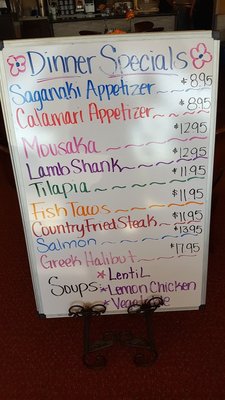 Dinner Specials
Saganaki Appetizer $8.95
Calamari Appetizer $8.95
Mousaka $12.95
Lamb Shank $12.95
Tilapia $11.95
Fish Tacos $11.95
Country Fried Steak $11.95
Salmon $13.95
Greek Halibut $17.95
Soups: *Lentil
*Lemon Chicken
*Vegetable